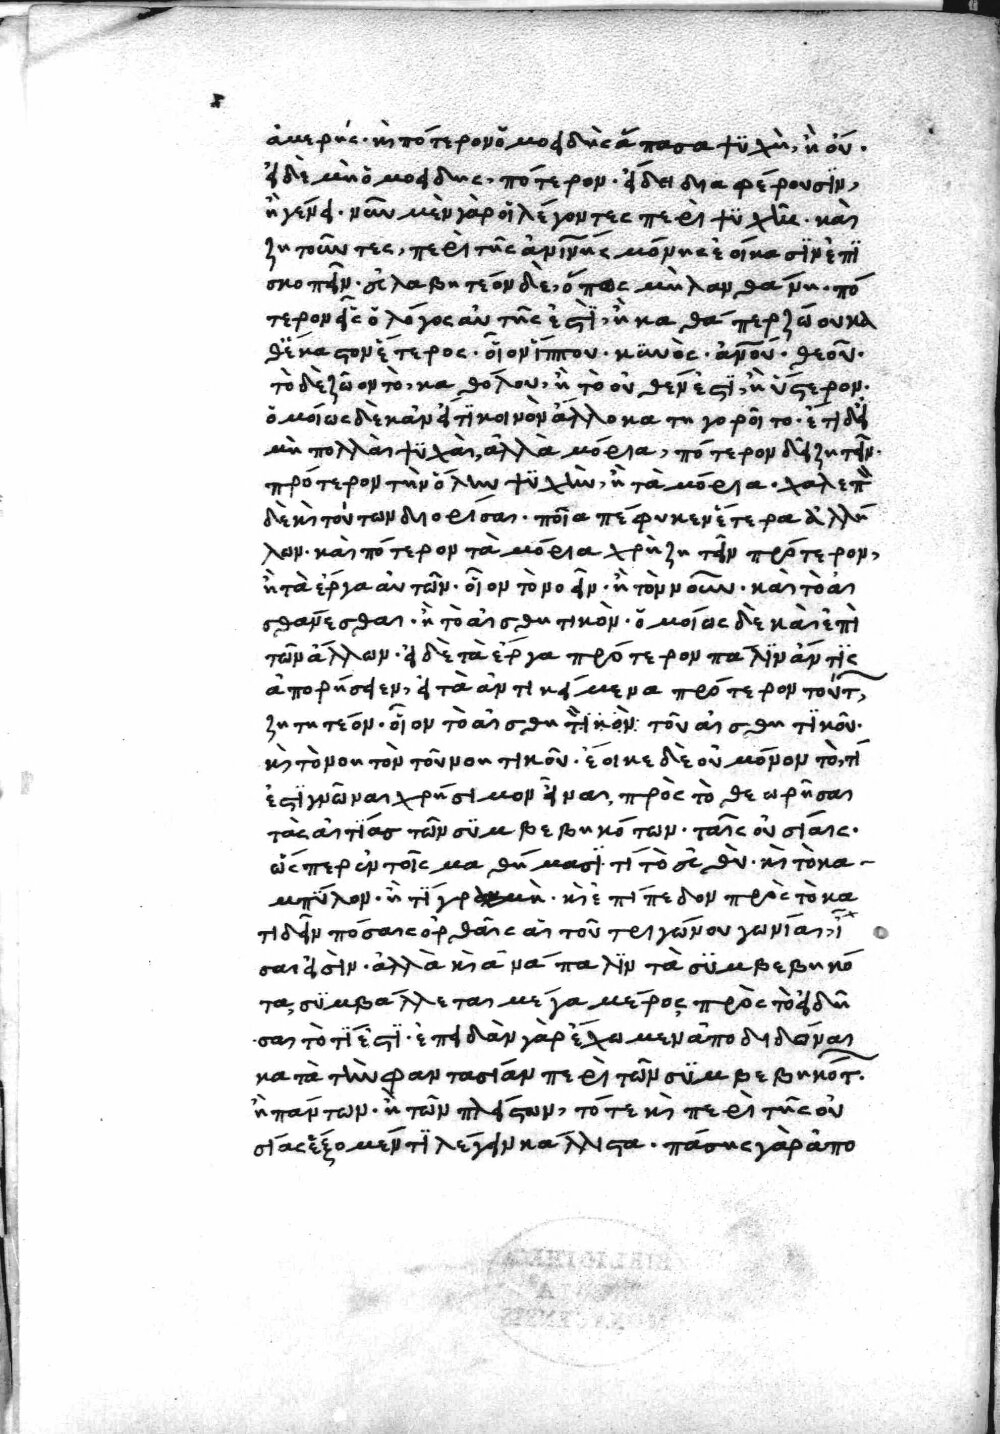 ἀμερής· καὶ πότερον ὁμοειδὴς ἅπασα ψυχὴ, ἢ οὔ·
εἰ δὲ μὴ ὁμοειδης, πότερον· εἴδει διαφέρουσϊν,
ἢ γένει· νῦν μὲν γὰρ οἱ λέγοντες περὶ ψυχῆς· καὶ
ζητοῦντες, περὶ τῆς ἀνθρωπίνης μόνης ἐοίκασϊν ἐπϊ
σκοπεῖν· εὐλαβητέον δὲ, ὅπως μὴ λανθάνη· πό
τερον εἷς ὁ λόγος αὐτῆς ἐστϊ, ἢ καθάπερ ζώου κα
θέκαστον ἕτερος· οἷον ἵππου· κυνὸς· ἀνθρώπου· θεοῦ·
τὸ δὲ ζῶον τὸ, καθόλου, ἢ τὸ οὐθέν ἐστϊ, ἢ ὕστερον·
ὁμοίως δὲ κἂν εἴ τϊ κοινὸν ἄλλο κατηγοροῖτο· ἔτι δὲ εἰ
μὴ πολλαὶ ψυχαὶ, ἀλλὰ μόρια, πότερον δεῖ ζητεῖν·
πρότερον τὴν ὅλην ψυχὴν, ἢ τὰ μόρια· χαλεπὸν
δὲ καὶ τούτων διορίσαι· ποῖα πέφυκεν ἕτερα ἀλλή
λων· καὶ πότερον τὰ μόρια χρὴ ζητεῖν πρότερον,
ἢ τὰ ἔργα αὐτῶν· οἷον τὸ νοεῖν· ἢ τὸν νοῦν· καὶ τὸ αἰ
σθάνεσθαι· ἢ τὸ αἰσθητικὸν· ὁμοίως δὲ καὶ ἐπὶ
τῶν ἄλλων· εἰ δὲ τὰ ἔργα πρότερον παλϊν ἄν τϊς
ἀπορήσειεν, εἰ τὰ ἀντικείμενα πρότερον τούτων,
ζητητέον· οἷον τὸ αἰσθητϊκὸν τοῦ αἰσθητϊκοῦ·
καὶ τὸ νοητὸν τοῦ νοητικοῦ· ἔοικε δὲ οὐ μόνον τὸ, τί
ἐστϊ γνῶναι χρήσιμον εἶναι, πρὸς τὸ θεωρῆσαι
τὰς αἰτϊας τῶν συμβεβηκότων· ταῖς οὐσίαις·
ὥσπερ ἐν τοῖς μαθήμασϊ τί τὸ εὐθὺ· καὶ τὸ κα-
μπύλον· ἢ τϊ γραμμὴ· καὶ ἐπίπεδον πρὸς τὸ κα
τιδεῖν πόσαις ὀρθαῖς αἱ τοῦ τριγώνου γωνίαι, ἴ
σαι εἰσὶν· ἀλλὰ καὶ ἀνάπαλϊν τὰ συμβεβηκό
τα, συμβάλλεται μέγα μέρος, πρὸς τὸ εἰδῆ
σαι τὸ τϊ ἐστϊ· ἐπειδὰν γὰρ ἔχωμεν ἀποδιδόναι
κατὰ τὴν φαντασίαν περὶ τῶν συμβεβηκότων·
ἢ πάντων· ἢ τῶν πλείστων, τότε καὶ περὶ τῆς οὐ
σίας ἕξομέν τϊ λέγειν κάλλιστα· πάσης γὰρ ἀπο